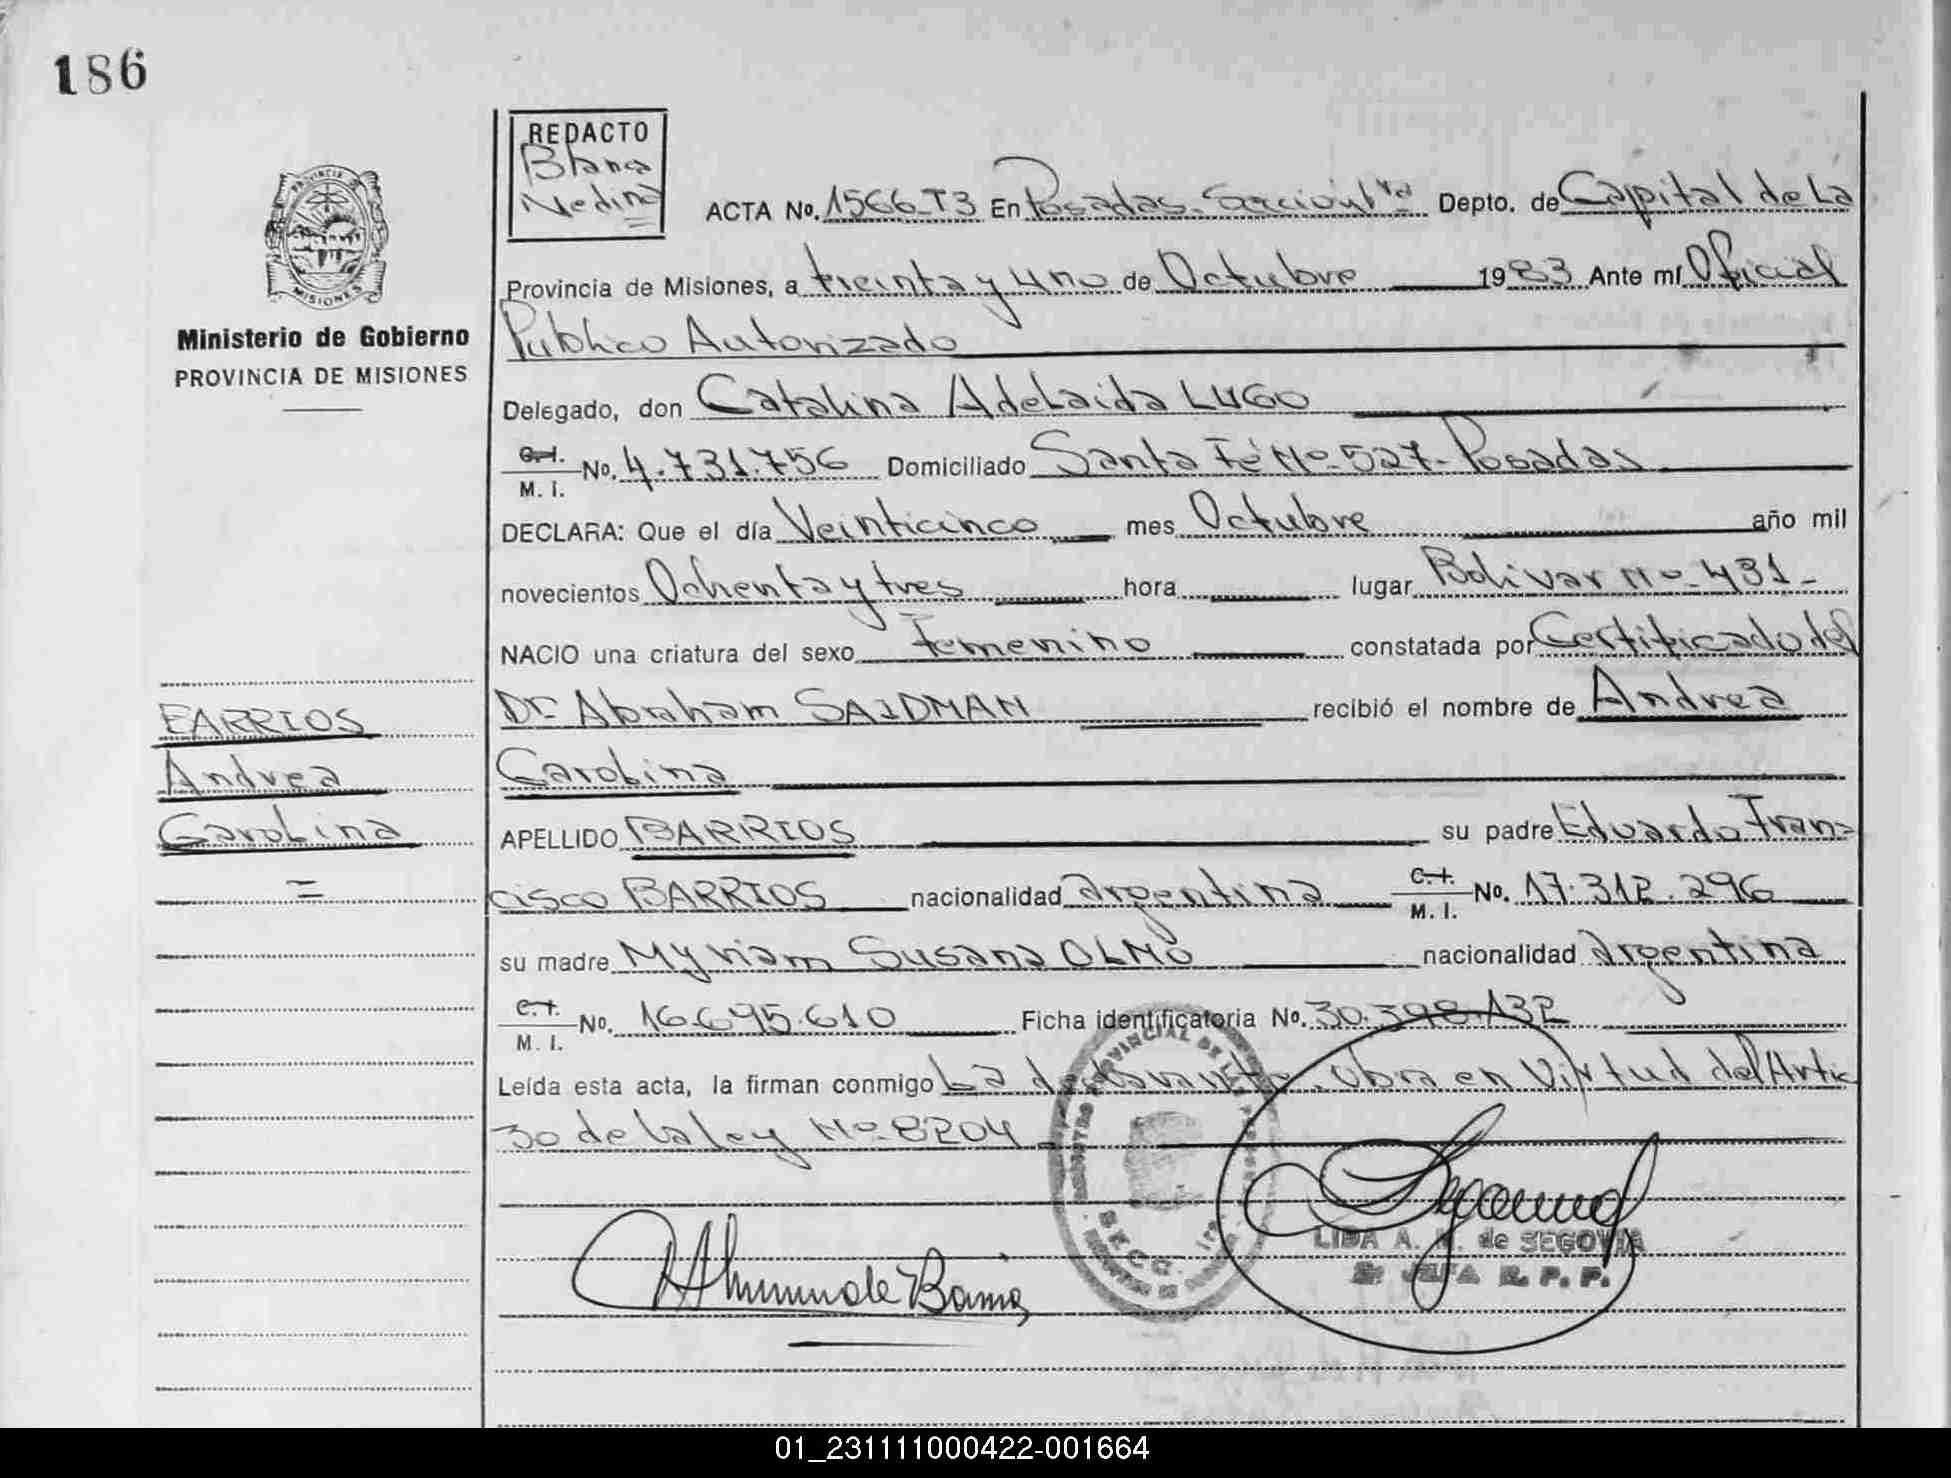 186
REDACTO
Blanca
Medina
ACTA No. 1566-T3 En Posadas. Sección 1ra Depto. de Capital de La
Provincia de Misiones, a treinta y uno de Octubre 1983 Ante mí Oficial
Público Autorizado
Delegado, don Catalina Adelaida LUGO
C.I.
M. I.
No. 4.731.756 Domiciliado Santa Fé No. 527- Posadas
DECLARA: Que el día Veinticinco mes Octubre año mil
novecientos Ochenta y tres hora lugar Bolivar No. 431-
NACIO una criatura del sexo Femenino constatada por Certificado del
Dr. Abraham SAIDMAN recibió el nombre de Andrea
Carolina
APELLIDO BARRIOS su padre Eduardo Fran=
cisco BARRIOS nacionalidad argentina C.I.
M. I.
No. 17.312.296
su madre Myriam Susana OLMO nacionalidad argentina
C.I.
M. I.
No. 16.695.610 Ficha identificatoria No. 30.398.132
Leída esta acta, la firman conmigo La obra en Virtud del Artic
30 de la ley No. 8204
PROVINCIA DE
MISIONES
Ministerio de Gobierno
PROVINCIA DE MISIONES
BARRIOS
Andrea
Carolina
=
PROVINCIAL DE LAS
SECC. 1ra.
LIDA A. de SEGOVIA
JEFA R. P. P.
01_231111000422-001664